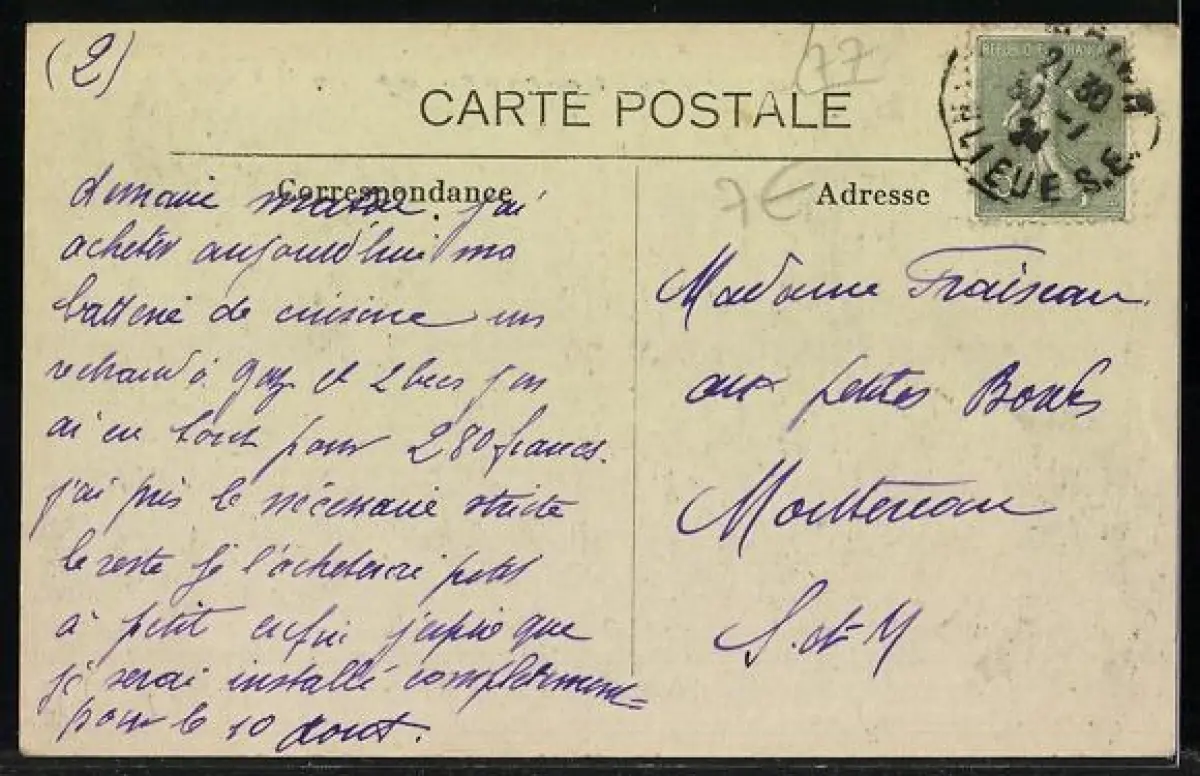 (2)
77
CARTE POSTALE
REPUBLIQUE FRANÇAISE
21 30
30 - 7
BANLIEUE S.E.
Correspondance
7€
Adresse
demain matin. j'ai
acheter aujourd'hui ma
batterie de cuisine un
rechaud à gaz et 2 becs j'en
ai eu tout pour 280 francs.
j'ai pris le nécessaire stricte
le reste je l'acheterai petit
à petit enfin que
je serai installé complètement
pour le 10 Aout.
Madame Fraiseau
aux petites Boxes
Montereau
S. et M